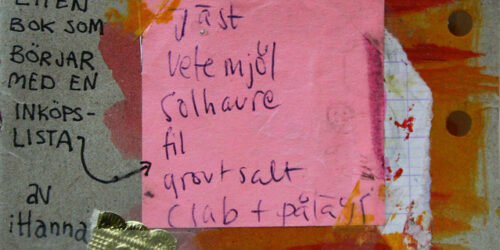 LITEN
BOK SOM
BÖRJAR
MED EN
INKÖPS-
LISTA
av
iHanna
jäst
vetemjöl
solhavre
fil
grovt salt
clab + pålägg